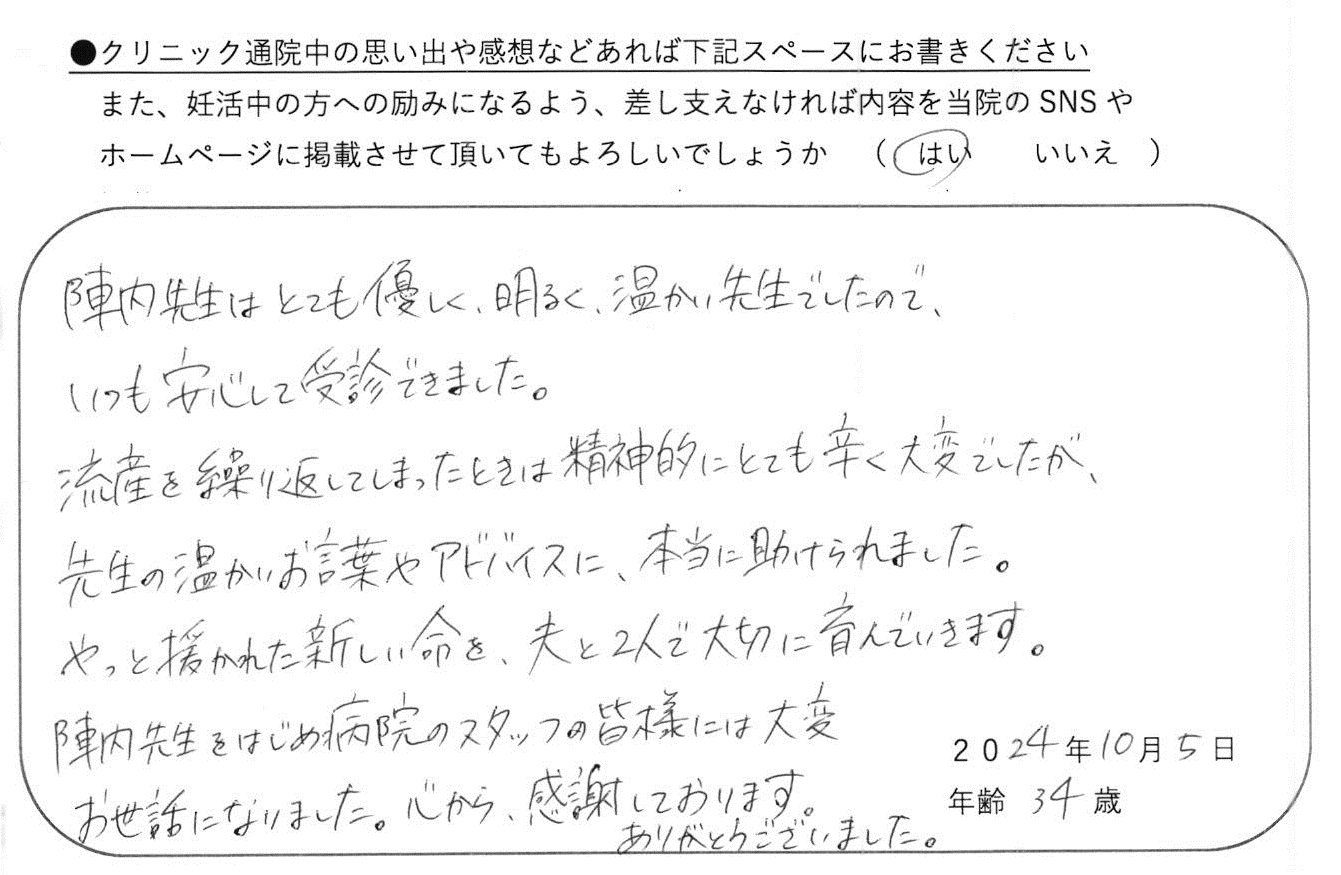 ●クリニック通院中の思い出や感想などあれば下記スペースにお書きください
また、妊活中の方への励みになるよう、差し支えなければ内容を当院のSNSや
ホームページに掲載させて頂いてもよろしいでしょうか （ はい いいえ ）
陣内先生はとても優しく、明るく、温かい先生でしたので、
いつも安心して受診できました。
流産を繰り返してしまったときは精神的にとても辛く大変でしたが、
先生の温かいお言葉やアドバイスに、本当に助けられました。
やっと授かれた新しい命を、夫と2人で大切に育んでいきます。
陣内先生をはじめ病院のスタッフの皆様には大変
お世話になりました。心から、感謝しております。
ありがとうございました。
2024年10月5日
年齢 34歳